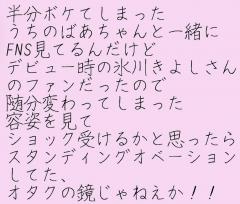 半分ボケてしまった
うちのばあちゃんと一緒に
FNS見てるんだけど
デビュー時の氷川きよしさん
のファンだったので
随分変わってしまった
容姿を見て
ショック受けるかと思ったら
スタンディングオベーション
してた、
オタクの鏡じゃねえか！！